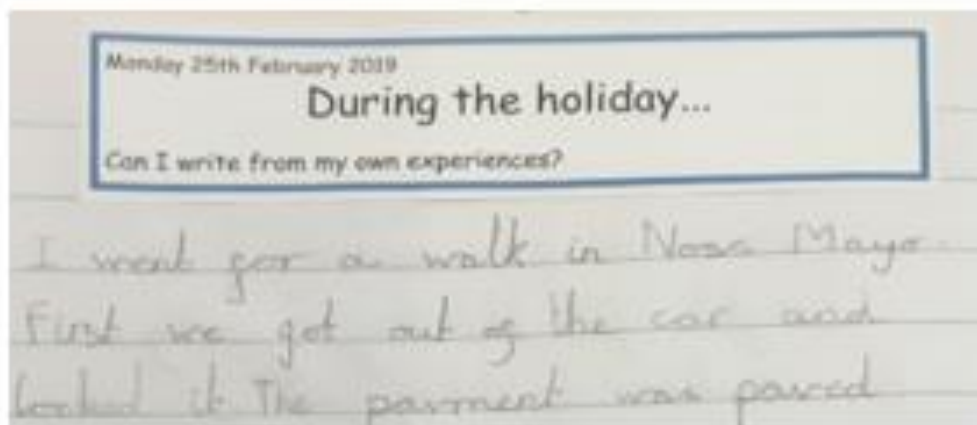 Monday 25th February 2019
During the holiday...
Can I write from my own experiences?
I went for a walk in Noss Mayo.
First we got out of the car and
locked it The pavment was paved